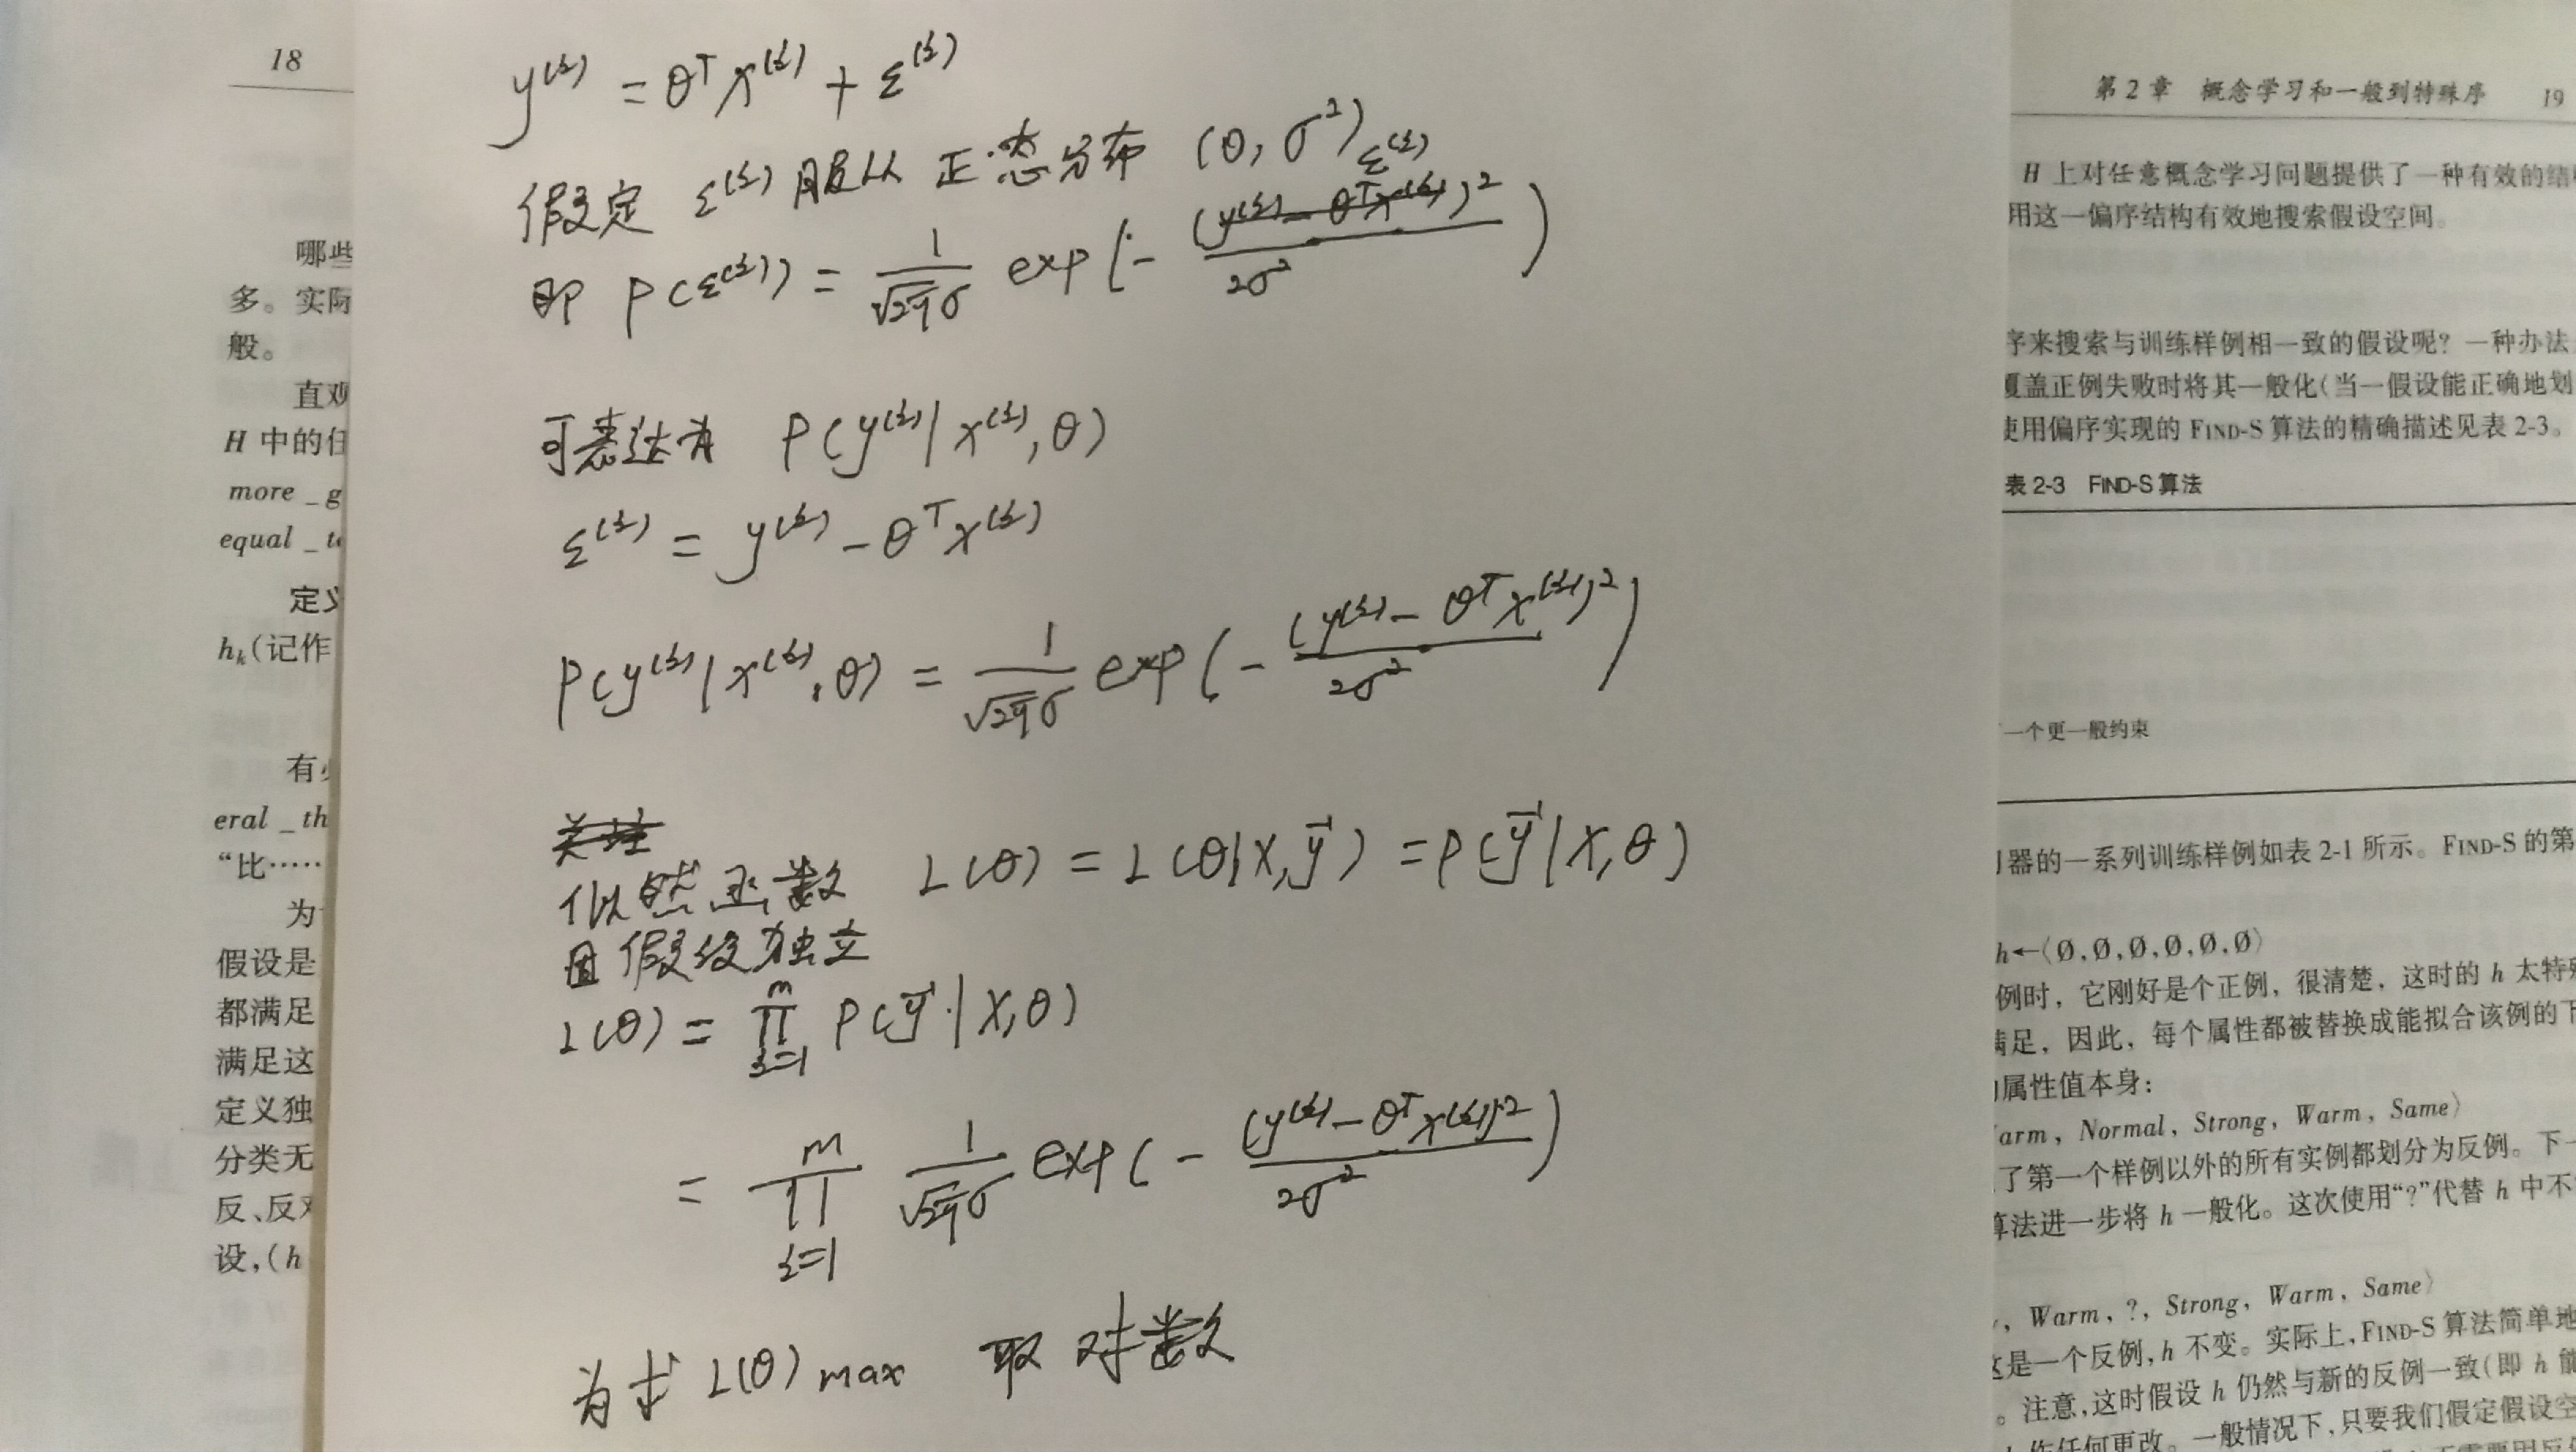 18
哪些
多。实际
般。
直观
H 中的任
more _ g
equal _ t
定义
hₖ(记作
有
eral _ th
“比……
为
假设是
都满足
满足这
定义独
分类无
反、反对
设,(h
y⁽ⁱ⁾ = θᵀx⁽ⁱ⁾ + ε⁽ⁱ⁾
假定 ε⁽ⁱ⁾ 服从 正态分布 (0, σ²)
ε⁽ⁱ⁾
即 P(ε⁽ⁱ⁾) = 1/(√2π σ) exp(- (y⁽ⁱ⁾ - θᵀx⁽ⁱ⁾)²/2σ²)
可表达为 P(y⁽ⁱ⁾|x⁽ⁱ⁾,θ)
ε⁽ⁱ⁾ = y⁽ⁱ⁾ - θᵀx⁽ⁱ⁾
P(y⁽ⁱ⁾|x⁽ⁱ⁾,θ) = 1/(√2π σ) exp(- (y⁽ⁱ⁾ - θᵀx⁽ⁱ⁾)²/2σ²)
似然函数 L(θ) = L(θ|X,y⃗) = P(y⃗|X,θ)
且假设独立
L(θ) = ∏ᵢ₌₁ᵐ P(y⃗|X,θ)
= ∏ᵢ₌₁ᵐ 1/(√2π σ) exp(- (y⁽ⁱ⁾ - θᵀx⁽ⁱ⁾)²/2σ²)
为求 L(θ)max 取对数
第2章 概念学习和一般到特殊序 19
H 上对任意概念学习问题提供了一种有效的结
用这一偏序结构有效地搜索假设空间。
序来搜索与训练样例相一致的假设呢? 一种办法
覆盖正例失败时将其一般化(当一假设能正确地划
使用偏序实现的 FIND-S 算法的精确描述见表 2-3。
表 2-3 FIND-S 算法
一个更一般约束
器的一系列训练样例如表 2-1 所示。FIND-S 的第
h←⟨Ø,Ø,Ø,Ø,Ø,Ø⟩
例时，它刚好是个正例，很清楚，这时的 h 太特殊
满足，因此，每个属性都被替换成能拟合该例的下
属性值本身:
arm, Normal, Strong, Warm, Same⟩
了第一个样例以外的所有实例都划分为反例。下一
算法进一步将 h 一般化。这次使用“?”代替 h 中不
, Warm, ?, Strong, Warm, Same⟩
这是一个反例, h 不变。实际上, FIND-S 算法简单地
。注意,这时假设 h 仍然与新的反例一致(即 h 能
作任何更改。一般情况下,只要我们假定假设空